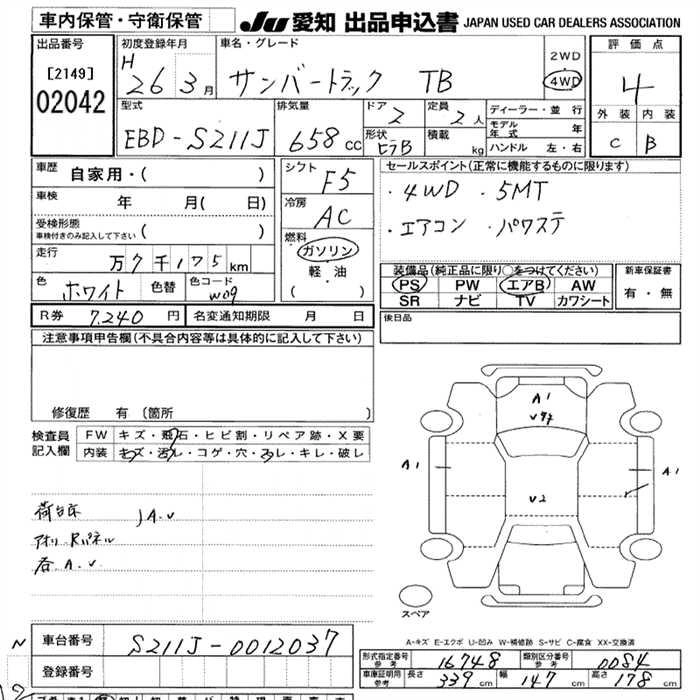 車内保管・守衛保管
JU 愛知 出品申込書 JAPAN USED CAR DEALERS ASSOCIATION
出品番号
[2149]
02042
初度登録年月
H 26 3月
車名・グレード
サンバートラック TB
2WD
4WD
評価点
4
外装 内装
C B
型式
EBD-S211J
排気量
658 cc
ドア
2
定員
2人
形状
ピラB
積載
kg
ディーラー・並行
モデル年式 年
ハンドル 左・右
車歴
自家用・( )
車検
年 月( 日)
受検形態
車検付きのみ記入して下さい ( )
走行
万7千175km
色
ホワイト
色替
色コード
W09
シフト
F5
冷房
AC
燃料
ガソリン
軽・油
( )
セールスポイント(正常に機能するものに限ります)
・4WD ・5MT
・エアコン ・パワステ
装備品(純正品に限り○をつけてください)
PS PW エアB AW
SR ナビ TV カワシート
新車保証書
有・無
後日品
R券 7,240 円
名変通知期限 月 日
注意事項申告欄(不具合内容等は具体的に記入して下さい)
修復歴 有(箇所 )
検査員記入欄
FW キズ・飛石・ヒビ割・リペア跡・X要
内装 キズ・汚レ・コゲ・穴・スレ・キレ・破レ
荷台床 A.U
アオリ Rパネル
A.U
A1
A1
A1
U2
スペア
A-キズ E-エクボ U-凹み W-補修跡 S-サビ C-腐食 XX-交換済
N
車台番号
S211J-0012037
登録番号
形式指定番号 参考
16748
類別区分番号 参考
0084
車庫証明用 参考
長さ 339cm
幅 147cm
高さ 178cm